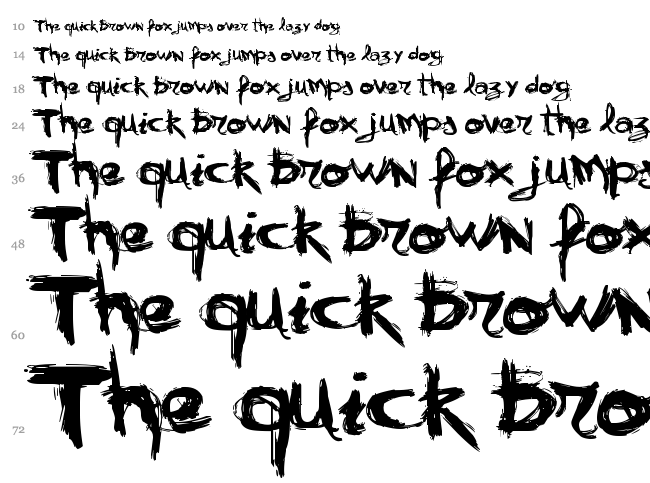 10 The quick brown fox jumps over the lazy dog
14 The quick brown fox jumps over the lazy dog
18 The quick brown fox jumps over the lazy dog
24 The quick brown fox jumps over the laz
36 The quick brown fox jumps
48 The quick brown fox
60 The quick brown
72 The quick bro